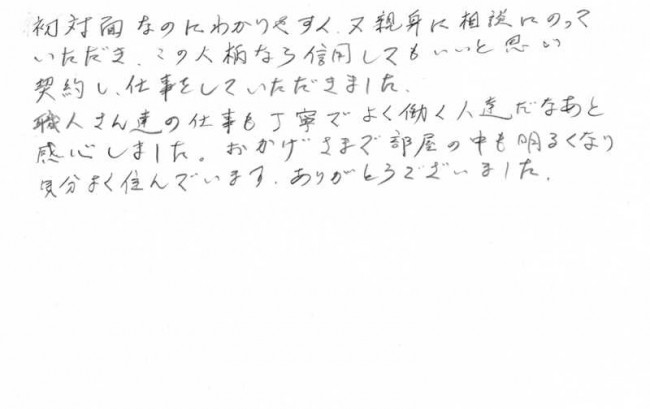 初対面なのにわかりやすく、又親身に相談にのって
いただき、この人柄なら信用してもいいと思い
契約し、仕事をしていただきました。
職人さん達の仕事も丁寧でよく働く人達だなあと
感心しました。おかげさまで部屋の中も明るくなり
気分よく住んでいます。ありがとうございました。